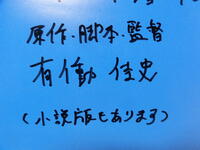 原作・脚本・監督
有働 佳史
(小説版もあります)